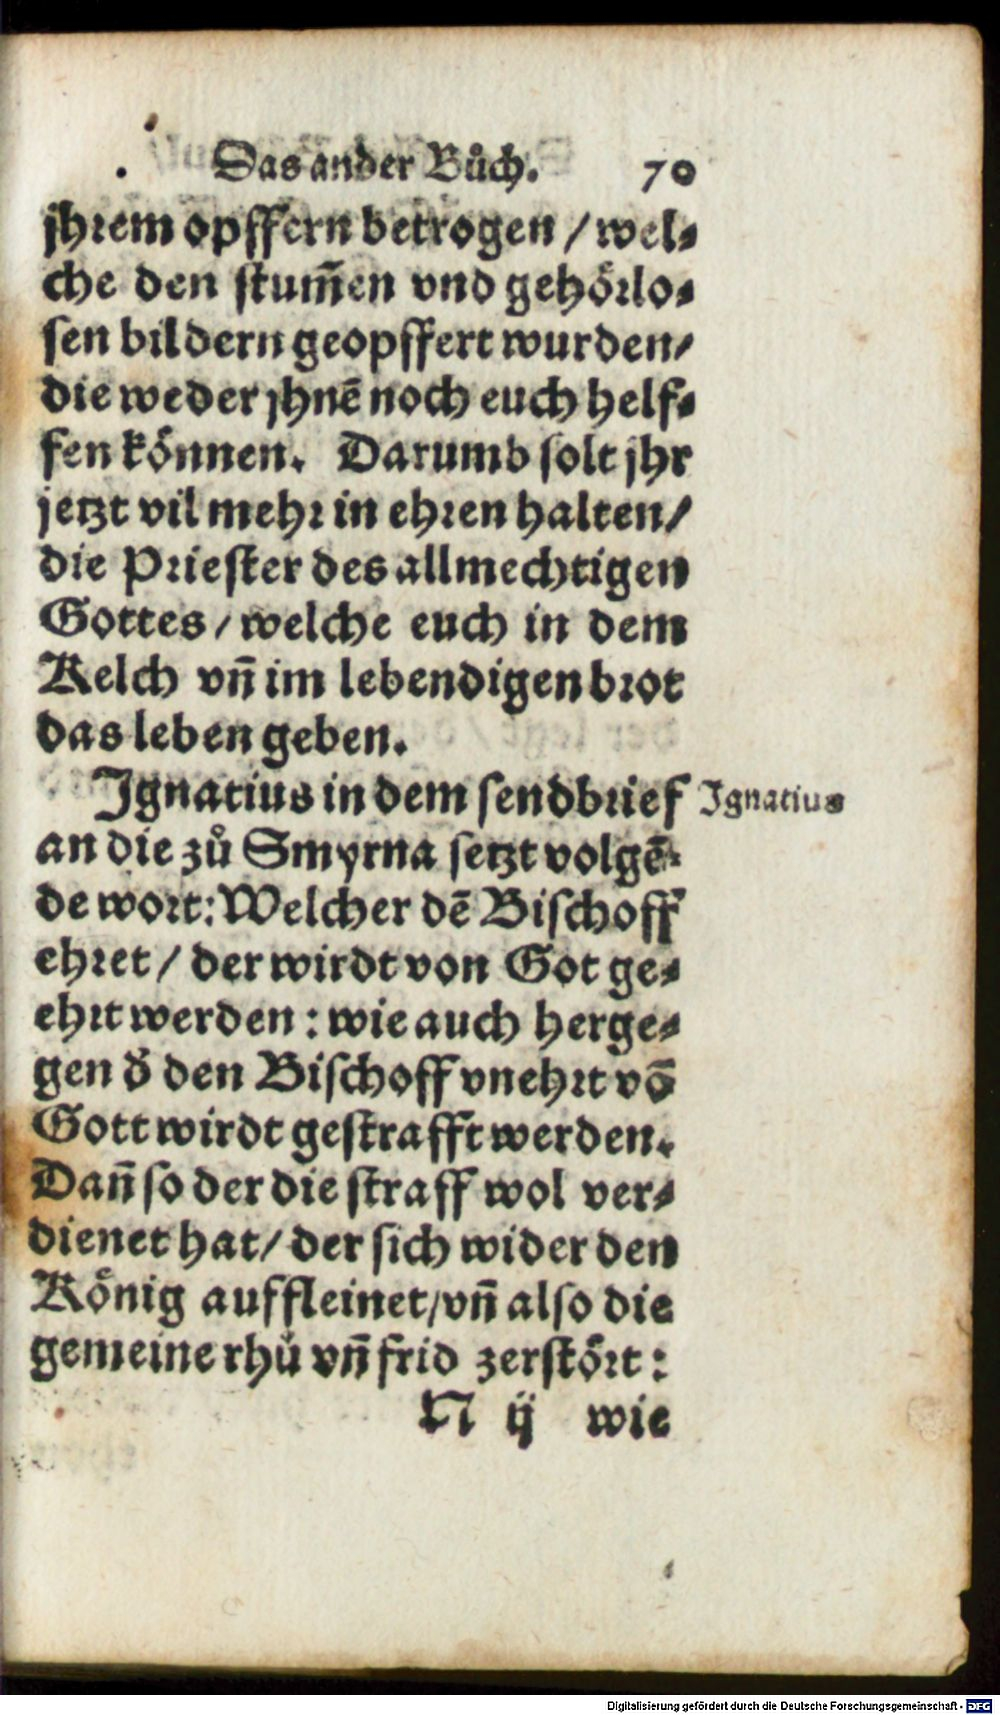 Das ander Bůch. 70
jhrem opffern betrogen / wel-
che den stum̃en vnd gehörlo-
sen bildern geopffert wurden/
die weder jhnẽ noch euch helf-
fen können. Darumb solt jhr
jetzt vil mehr in ehren halten/
die Priester des allmechtigen
Gottes / welche euch in dem
Kelch vñ im lebendigen brot
das leben geben.
Ignatius in dem sendbrief Ignatius
an die zů Smyrna setzt volgẽ-
de wort: Welcher dẽ Bischoff
ehret / der wirdt von Got ge-
ehrt werden : wie auch herge-
gen d̃ den Bischoff vnehrt võ
Gott wirdt gestrafft werden.
Dañ so der die straff wol ver-
dienet hat / der sich wider den
König auffleinet/vñ also die
gemeine rhů vñ frid zerstört :
N ij wie
Digitalisierung gefördert durch die Deutsche Forschungsgemeinschaft - DFG